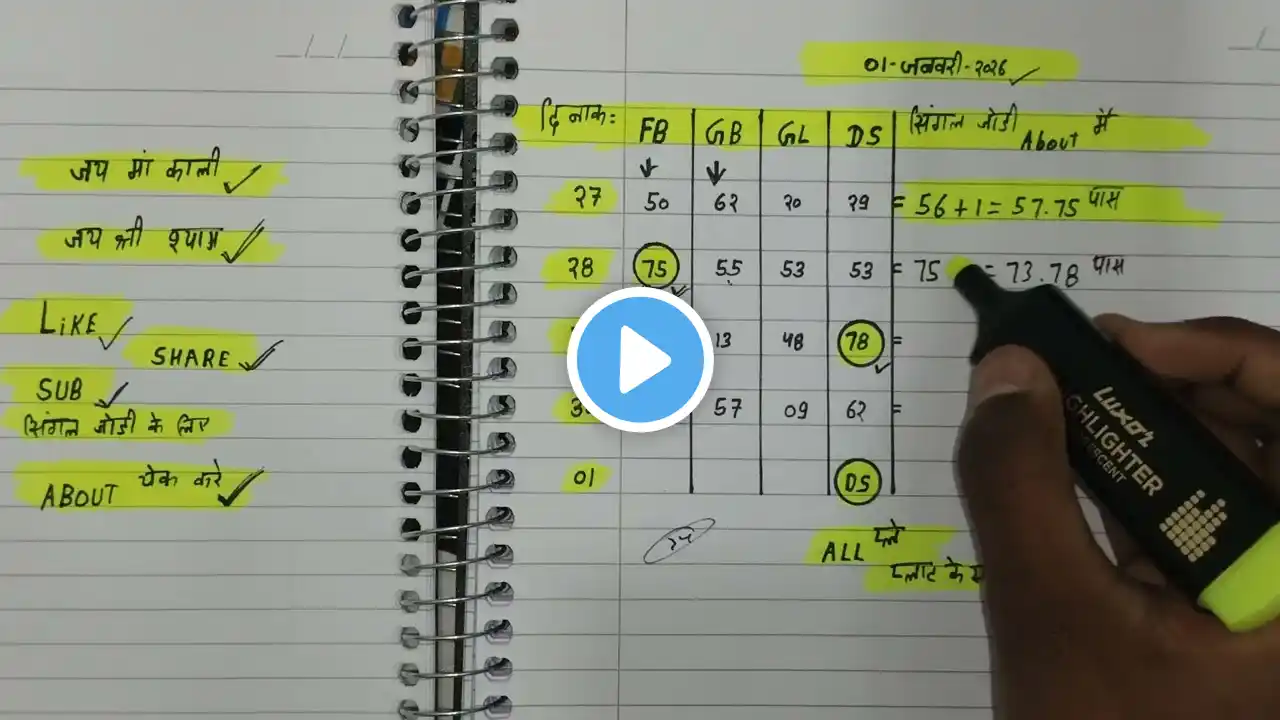 जय मां काली
जय श्री श्याम
LIKE
SHARE
SUB
सिंगल जोडी के लिए
ABOUT चेक करे
01-जनवरी-२०२६
दिनाक: FB GB GL DS सिंगल जोडी About मै
27 50 62 20 29 = 56+1= 57.75 पास
28 75 55 53 53 = 75 = 73.78 पास
13 48 78 =
57 09 62 =
01 DS
ALL प्ले
प्लाट के
Luxor
HIGHLIGHTER